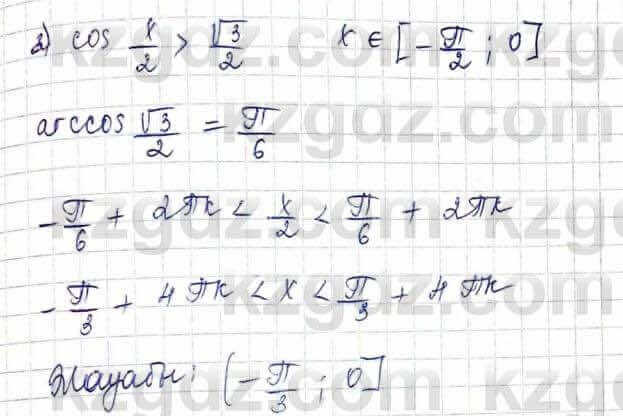 2) cos x/2 > √3/2 x ∈ [-π/2; 0]
arccos √3/2 = π/6
-π/6 + 2πk < x/2 < π/6 + 2πk
-π/3 + 4πk < x < π/3 + 4πk
Жауабы: (-π/3; 0]
kzgdz.com